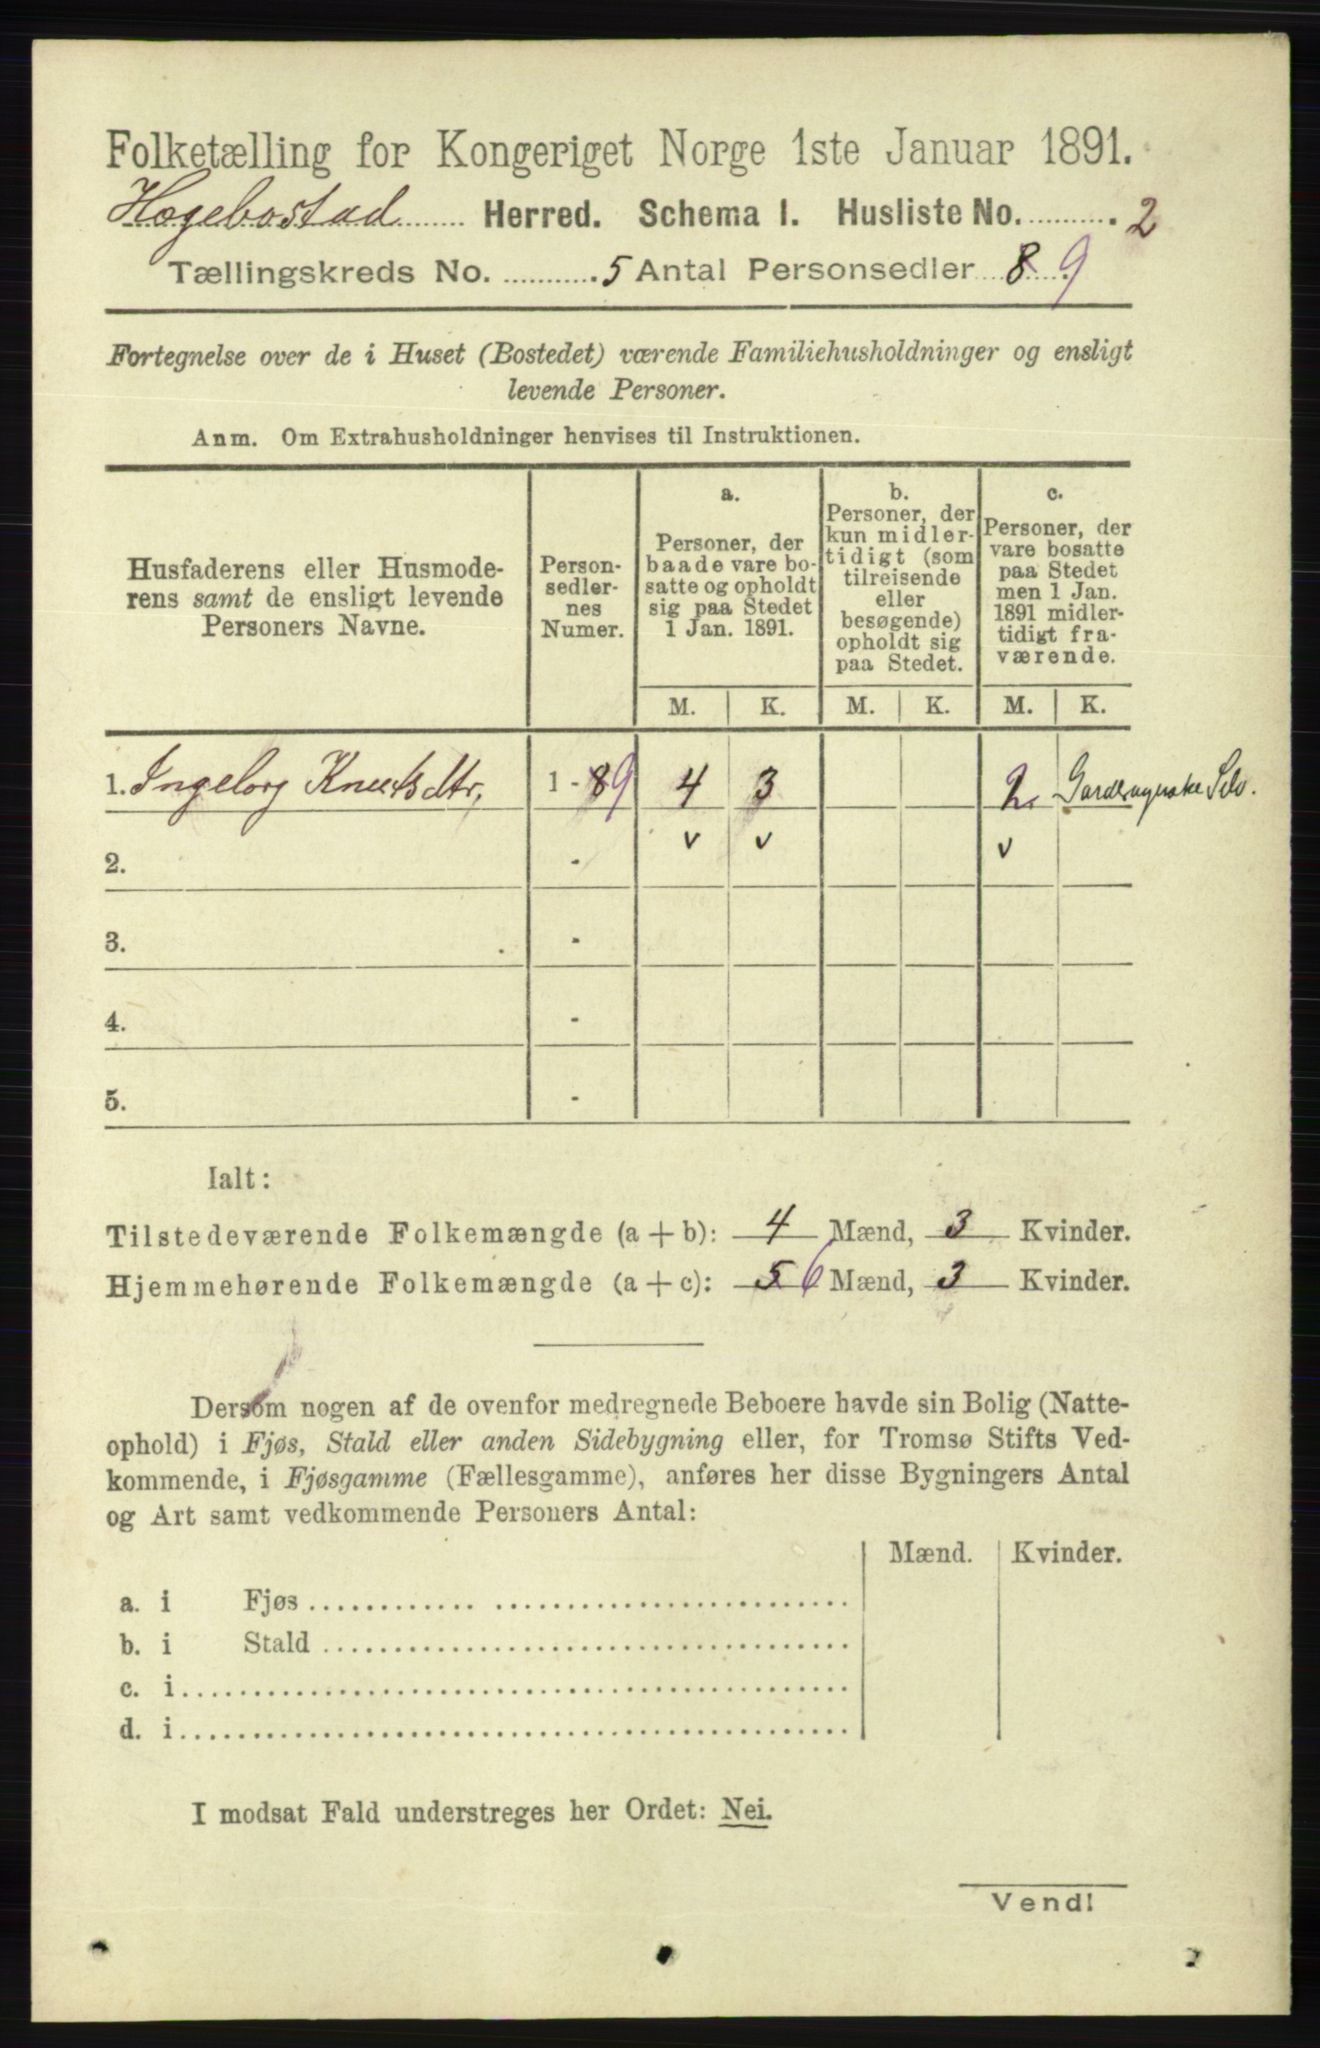 Folketælling for Kongeriget Norge 1ste Januar 1891.
Hægebostad Herred. Schema I. Husliste No. 2
Tællingskreds No. 5 Antal Personsedler 8 9
Fortegnelse over de i Huset (Bostedet) værende Familiehusholdninger og ensligt
levende Personer.
Anm. Om Extrahusholdninger henvises til Instruktionen.
Husfaderens eller Husmode-
rens samt de ensligt levende
Personers Navne.
Person-
sedler-
nes
Numer.
a.
Personer, der
baade vare bo-
satte og opholdt
sig paa Stedet
1 Jan. 1891.
b.
Personer, der
kun midler-
tidigt (som
tilreisende
eller
besøgende)
opholdt sig
paa Stedet.
c.
Personer, der
vare bosatte
paa Stedet
men 1 Jan.
1891 midler-
tidigt fra-
værende.
M. K. M. K. M. K.
1. Ingeborg Knutsdtr, 1 - 8 9 4 3 2
v v v
2. -
3. -
4. -
5. -
Ialt:
Tilstedeværende Folkemængde (a + b): 4 Mænd, 3 Kvinder.
Hjemmehørende Folkemængde (a + c): 5 6 Mænd, 3 Kvinder.
Dersom nogen af de ovenfor medregnede Beboere havde sin Bolig (Natte-
ophold) i Fjøs, Stald eller anden Sidebygning eller, for Tromsø Stifts Ved-
kommende, i Fjøsgamme (Fællesgamme), anføres her disse Bygningers Antal
og Art samt vedkommende Personers Antal:
Mænd. Kvinder.
a. i Fjøs
b. i Stald
c. i
d. i
I modsat Fald understreges her Ordet: Nei.
Vend!